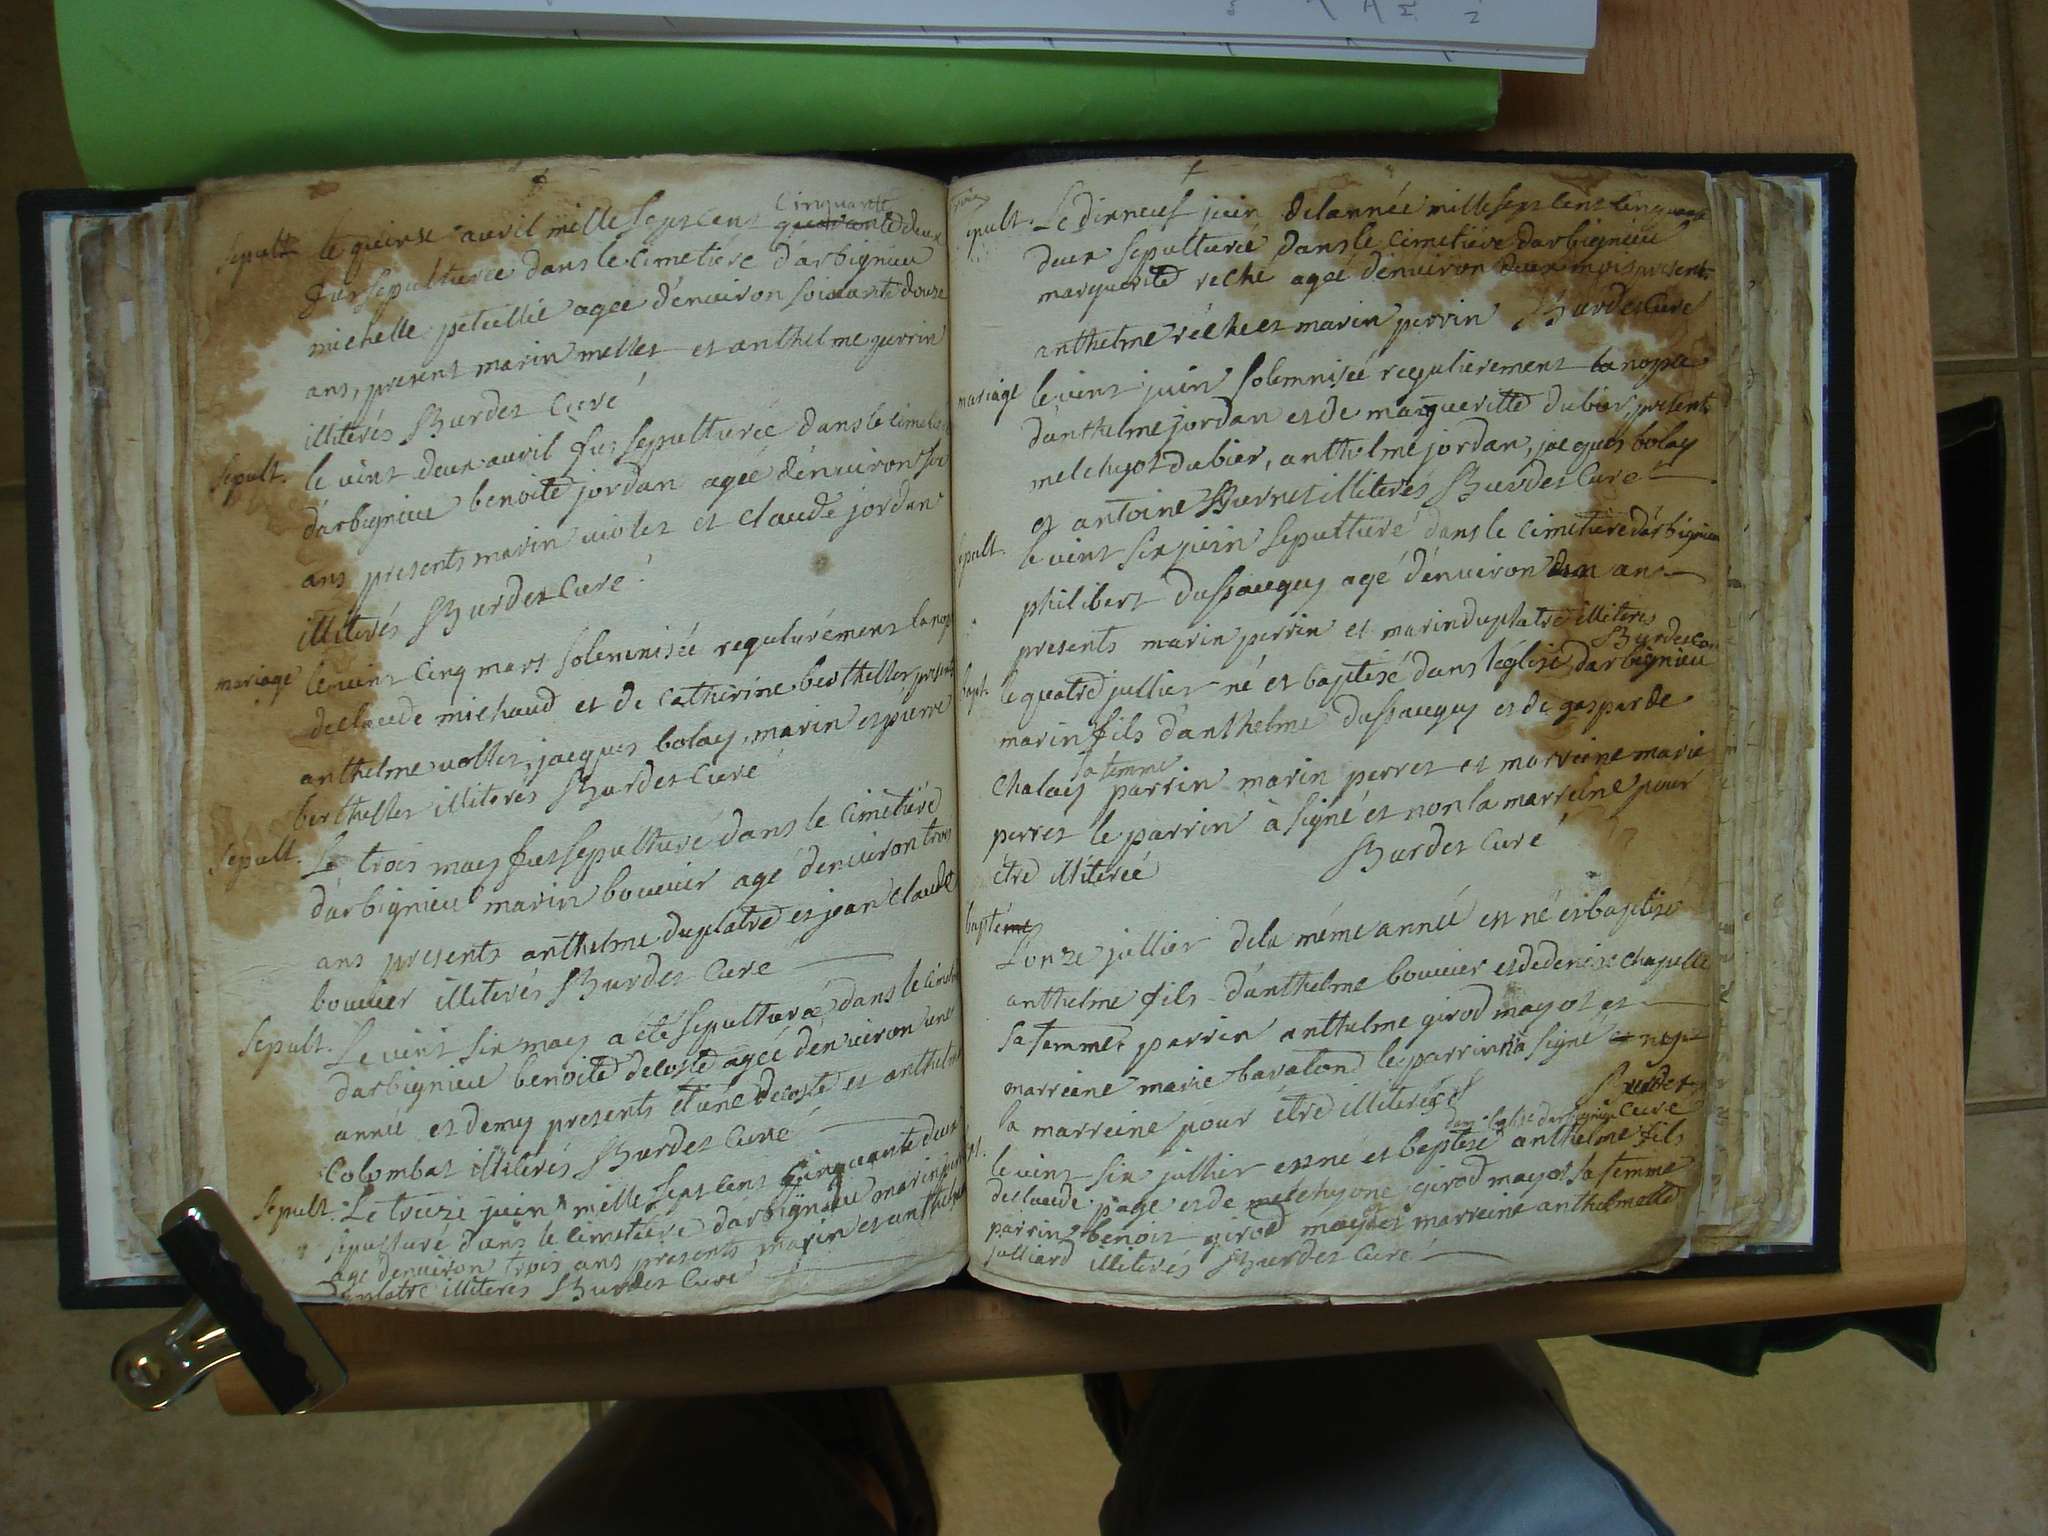 Sepult. le quinse avril mille sept cent cinquante quarante deux
fut sepulturée dans le cimetiére d'arbignieu
michelle petullié agée d'environ soixante douse
ans, present marin mellet et anthelme perrin
illiterés Burdet Curé
Sepult. le vint deux avril fut sepulturée dans le cimetiere
d'arbignieu benoite jordan agée d'environ six
ans presents marin violet et claude jordan
illiterés Burdet Curé
mariage le vint cinq mars solemnisée regulierément la nopse
de claude michaud et de catherine berthellet presents
anthelme vollet, jacques bolay, marin et pierre
berthellet illiterés Burdet Curé
Sepult. Le trois may fut sepulturé dans le cimetiére
d'arbignieu marin bouvier agé d'environ trois
ans presents anthelme duplatre et jean claude
bouvier illiterés Burdet Curé
Sepult. Le vint six may a été sepulturée dans le cimetiere
d'arbignieu benoite decoste agée d'environ une
année et demy presents etiene decoste et anthelme
Colombat illiterés Burdet Curé
Sepult. Le treize juin mille sept cent cinquante deux
sepulturé dans le cimetiére d'arbignieu marin
agé d'environ trois ans presents marin et anthelme
duplatre illiterés Burdet Curé
sepult. Le dixneuf juin de l'année mille sept cent cinquante
deux sepulturée dans le cimetiére d'arbignieu
marguerite reche agée d'environ deux mois presents
anthelme réche et marin perrin Burdet Curé
mariage le vint juin solemnisée regulierement la nopse
d'anthelme jordan et de margueritte dubier, presents
melchyot dubier, anthelme jordan, jacques bolay
et antoine Burnet illiterés Burdet Curé
sepult. le vint six juin sepulturé dans le cimetiere d'arbignieu
philibert dussauguy agé d'environ un an
presents marin perrin et marin duplatre illiteres
Burdet Cure
bapt. le quatre jullier né et baptisé dans l'église d'arbignieu
marin fils d'anthelme dussauguy et de gasparde
chalay sa femme parrin marin perret et marreine marie
perret le parrin à signé et non la marreine pour
être illiterée Burdet Curé
baptême
L'onze jullier de la méme année est né et baptisé
anthelme fils d'anthelme bouvier et de denise chapelle
sa femme parrin anthelme girod mayot et
marreine marie baraton le parrin n'a signé ny
la marreine pour étre illiterés Burdet
Curé
le vint six jullier est né et baptisé dans l'eglise d'arbignieu anthelme fils
de claude page et de melchyone girod mayot sa femme
parrin benoit girod mayot et marreine anthelmette
julliard illiterés Burdet Curé